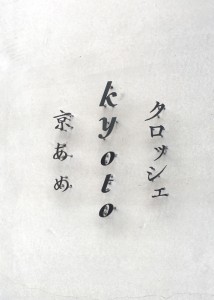 タロッシェ
kyoto
京あめ